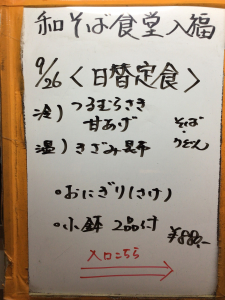 和そば食堂入福
9/26 <日替定食>
冷) つるむらさき
甘あげ
温) きざみ昆布
そば
・
うどん
・おにぎり(さけ)
・小鉢 2品付
¥880,-
入口こちら